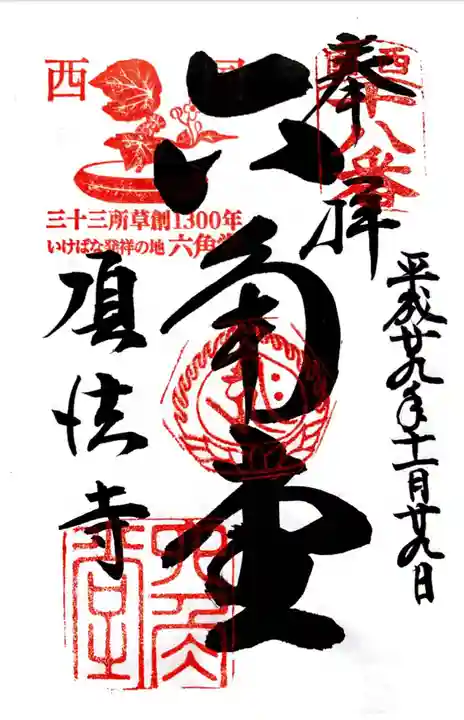 平成廿九年十一月廿九日
奉拝
西国十八番
六角堂
西国
三十三所草創1300年
いけばな発祥の地 六角堂
頂法寺
六角堂